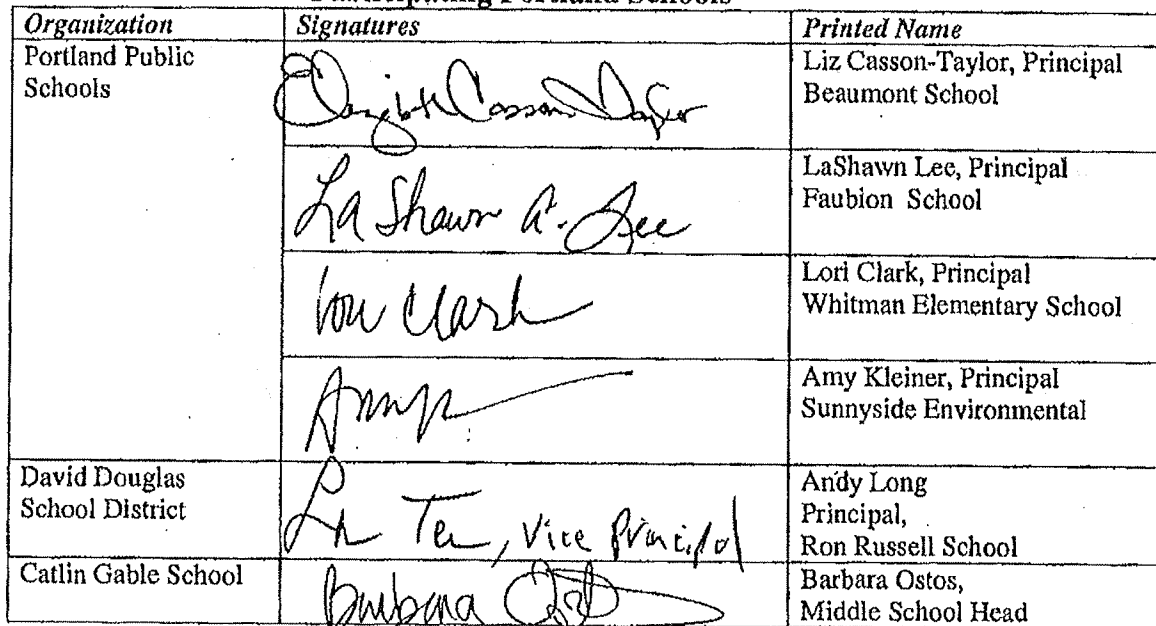 Participating Portland Schools
Organization Signatures Printed Name
Portland Public
Schools
Elizabeth Casson Taylor
Liz Casson-Taylor, Principal
Beaumont School
LaShawn A. Lee
LaShawn Lee, Principal
Faubion School
Lori Clark
Lori Clark, Principal
Whitman Elementary School
Amy Kleiner, Principal
Sunnyside Environmental
David Douglas
School District
, Vice Principal
Andy Long
Principal,
Ron Russell School
Catlin Gable School
Barbara
Barbara Ostos,
Middle School Head